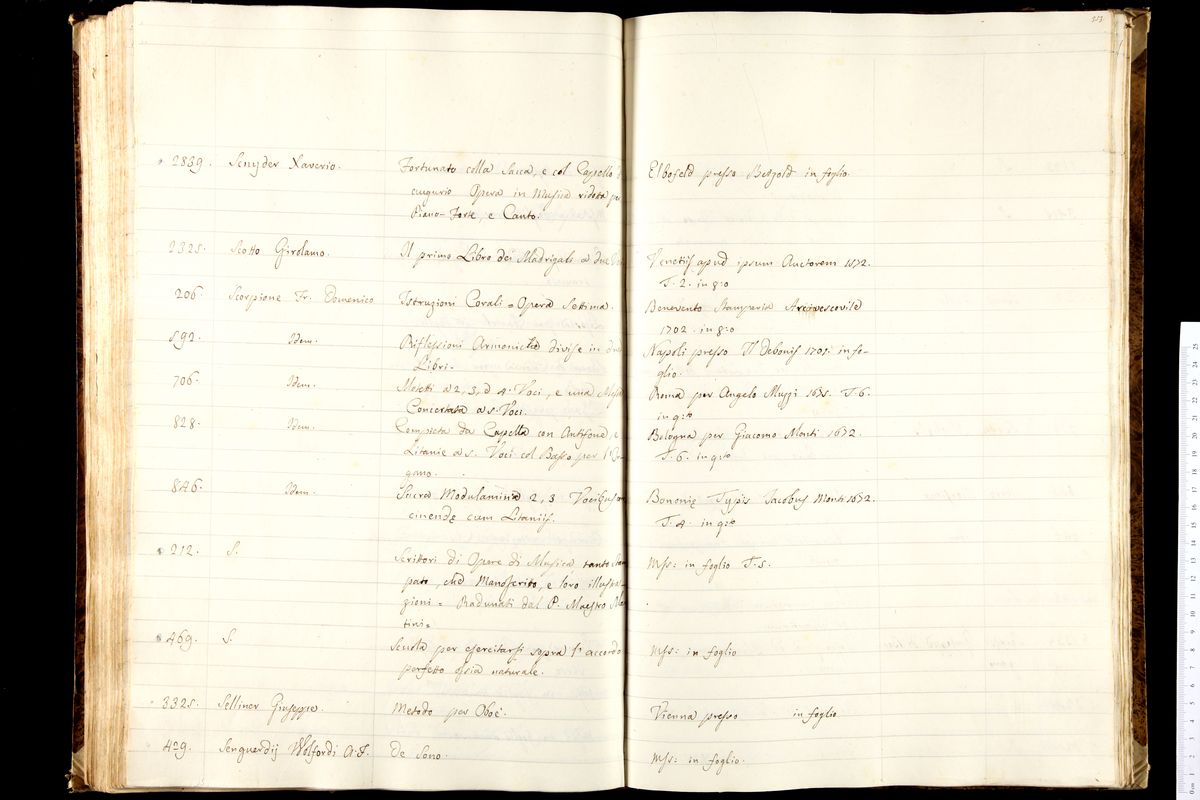 2839. Scnyder Xaverio. Fortunato colla Sacca, e col Cappello Elbofeld presso Betzold in foglio.
augurio Opera in Musica ridotta per
Piano-Forte, e Canto.
2325. Scotto Girolamo. Il primo Libro dei Madrigali a due Venetijs apud ipsum Auctorem 1572.
T. 2. in 8:o
206. Scorpione Fr. Domenico Istruzioni Corali = Opera Settima. Benevento Stamperia Arcivescovile
1702. in 8:o
592. Idem. Riflessioni Armoniche divise in due Napoli presso 1701. in fo-
Libri. glio.
706. Idem. Motetti a 2, 3, a 4. Voci, e una Messa Roma per Angelo Muzzi 1675. T. 6.
Concertata a 5. Voci. in 4:to
828. Idem. Compieta da Capella con Antifone, e Bologna per Giacomo Monti 1672.
Litanie a 5. Voci col Basso per l'Or- T. 6. in 4:to
gano.
846. Idem. Sacra Modulamina 2, 3 Bononię Typis Jacobus Monti 1672.
cinendę cum Litanijs. T. 4. in 4:to
212. S. Scrittori di Opere di Musica, tanto stam- Mss: in foglio T. 5.
pate, che Manoscrite, e loro illustra-
zioni = Radunati dal P. Maestro Mar-
tini =
469. S. Scuola per esercitarsi sopra l'accordo Mss: in foglio
perfetto ossia naturale.
3325. Selliner Giuseppe. Metodo per Oboè. Vienna presso in foglio
429. Senguerdij Wolfordi A. F. De Sono. Mss: in foglio.